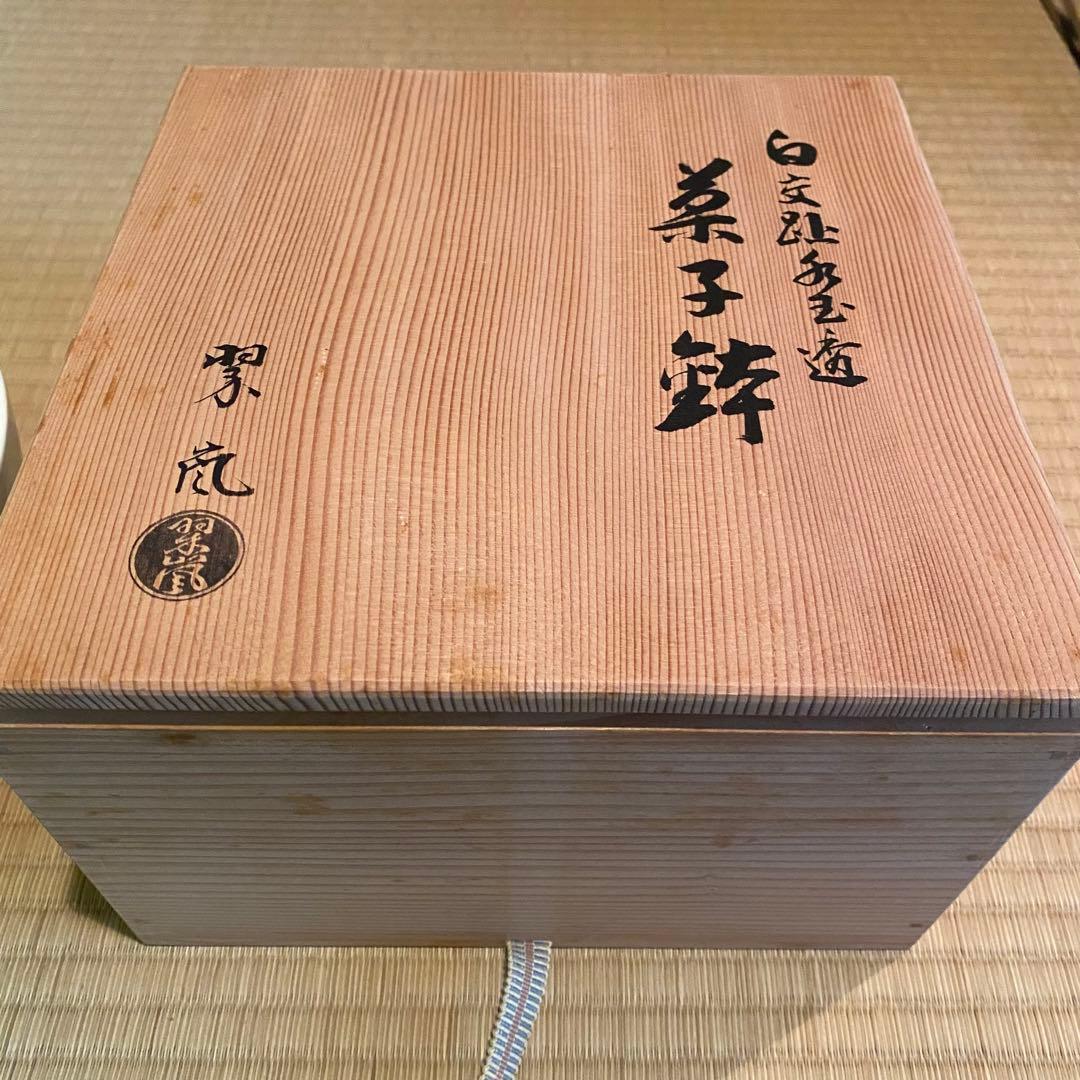 白交趾水玉透
菓子鉢
翠嵐
翠嵐